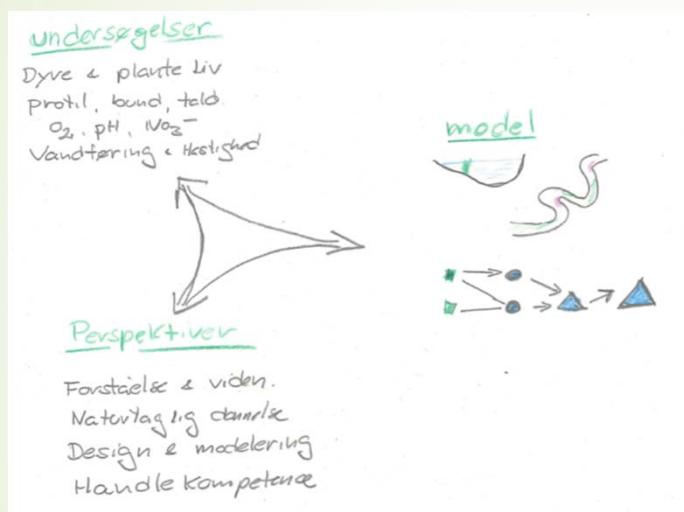 undersøgelser
Dyre & plante liv
profil, bund, fald.
O₂, pH, NO₃⁻
Vandføring & Hastighed
model
Perspektiver
Forståelse & viden.
Naturfaglig dannelse
Design & modelering
Handle kompetence